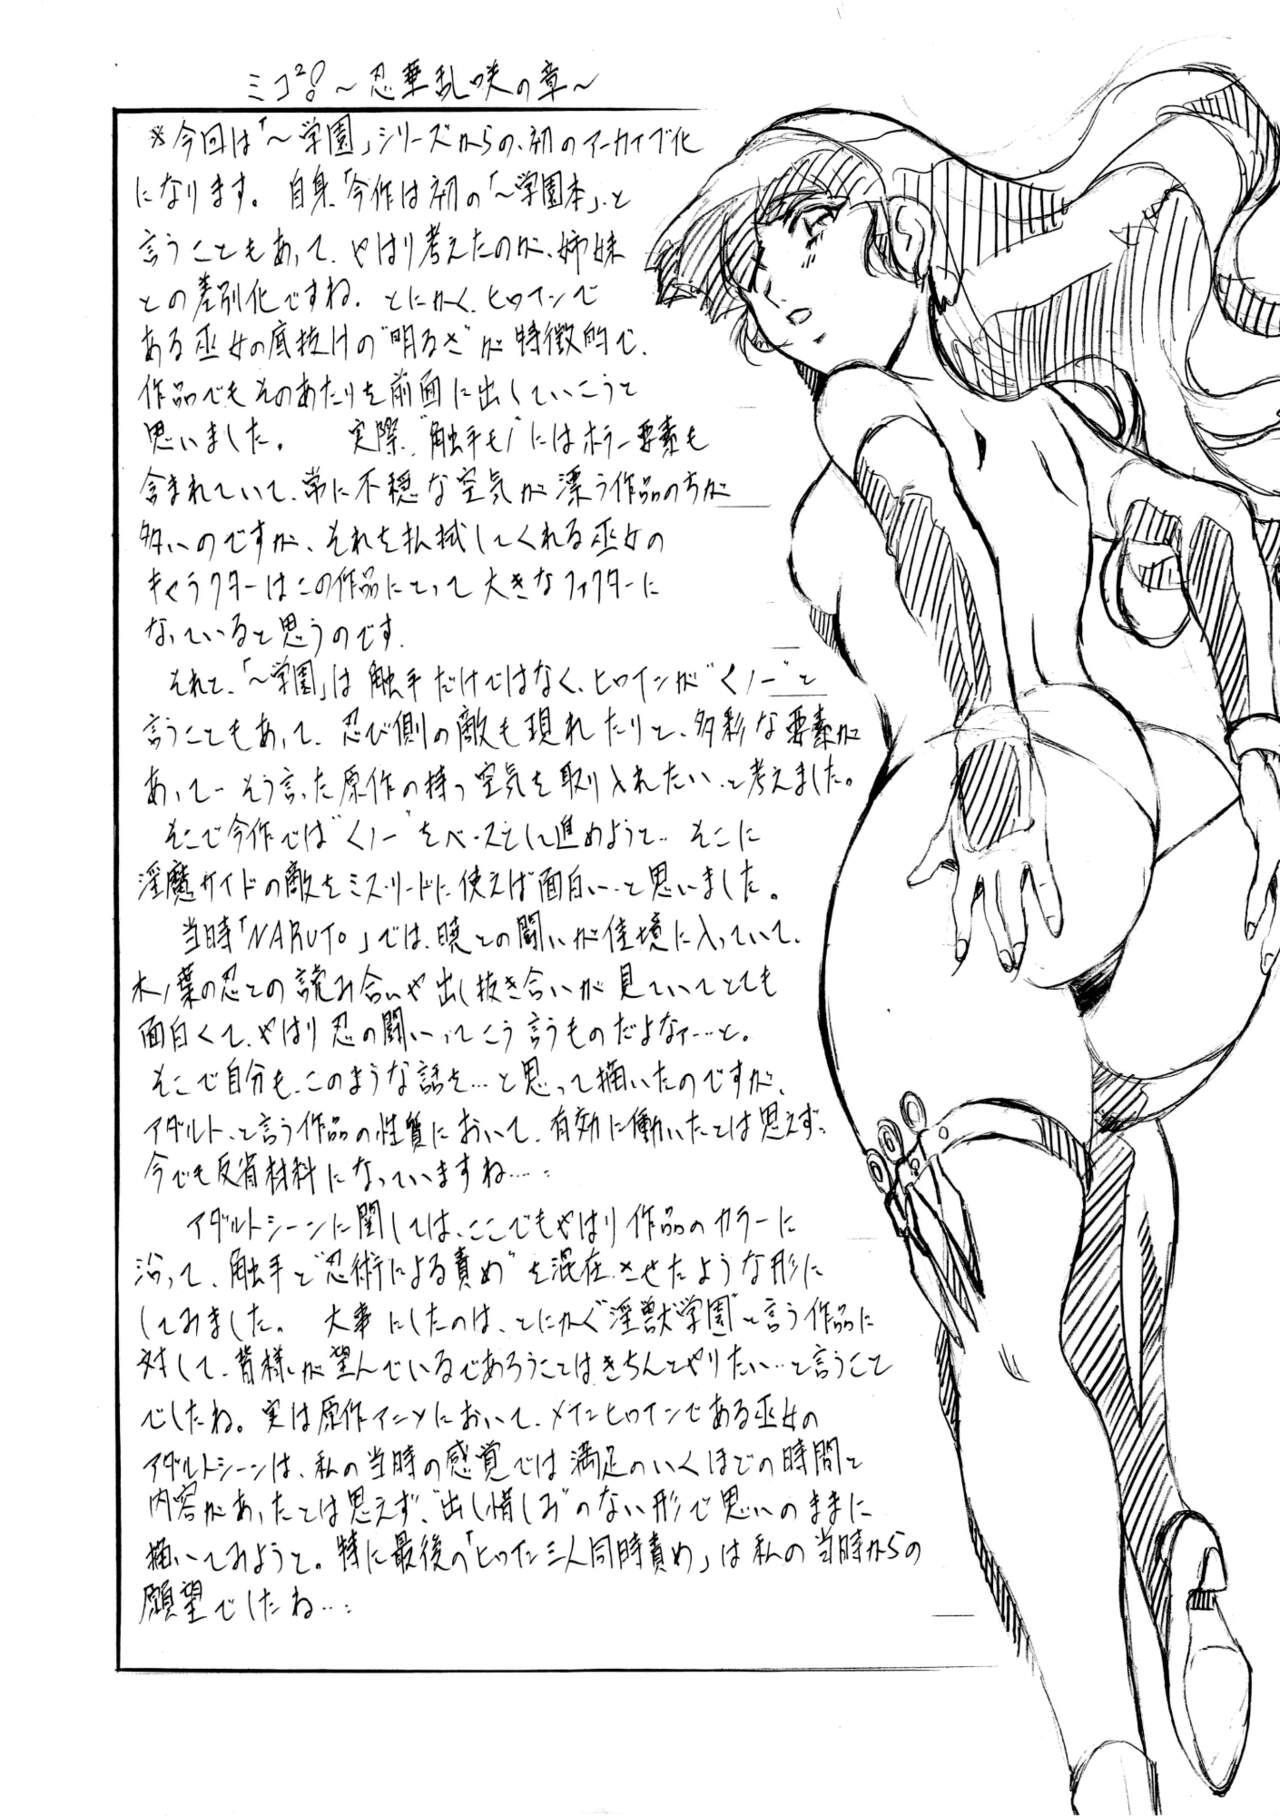 ミコ²！～忍華乱咲の章～
※今回は「～学園」シリーズからの、初のアーカイブ化
になります。 自身、今作は初の「～学園本」、と
言うこともあって、やはり考えたのが、姉妹
との差別化ですね。とにかく、ヒロインで
ある巫女の底抜けの“明るさ”が特徴的で、
作品でもそのあたりを前面に出していこうと
思いました。 実際、“触手モノ”にはホラー要素も
含まれていて、常に不穏な空気が漂う作品の方が
多いのですが、それを払拭してくれる巫女の
キャラクターはこの作品にとって大きなファクターに
なっていると思うのです。
それと、「～学園」は触手だけではなく、ヒロインが“くノ一”と
言うこともあって、忍び側の敵も現れたりと、多彩な要素が
あって…そう言った原作の持つ空気を取り入れたい、と考えました。
そこで今作では“くノ一”をベースとして進めようと… そこに
淫魔サイドの敵をミスリードに使えば面白い…と思いました。
当時「NARUTO」では、暁との闘いが佳境に入っていて、
木ノ葉の忍との読み合いや出し抜き合いが見ていてとても
面白くて、やはり忍の闘いってこう言うものだよなァ…と。
そこで自分も、このような話を…と思って描いたのですが、
アダルト、と言う作品の性質において、有効に働いたとは思えず…
今でも反省材料になっていますね…：
アダルトシーンに関しては、ここでもやはり作品のカラーに
沿って、触手と“忍術による責め”を混在させたような形に
してみました。 大事にしたのは、とにかく“淫獣学園”と言う作品に
対して、皆様が望んでいるであろうことはきちんとやりたい…と言うこと
でしたね。実は原作アニメにおいて、メインヒロインである巫女の
アダルトシーンは、私の当時の感覚では満足のいくほどの時間と
内容があったとは思えず、“出し惜しみ”のない形で思いのままに
描いてみようと。特に最後の「ヒロイン三人同時責め」は私の当時からの
願望でしたね…：